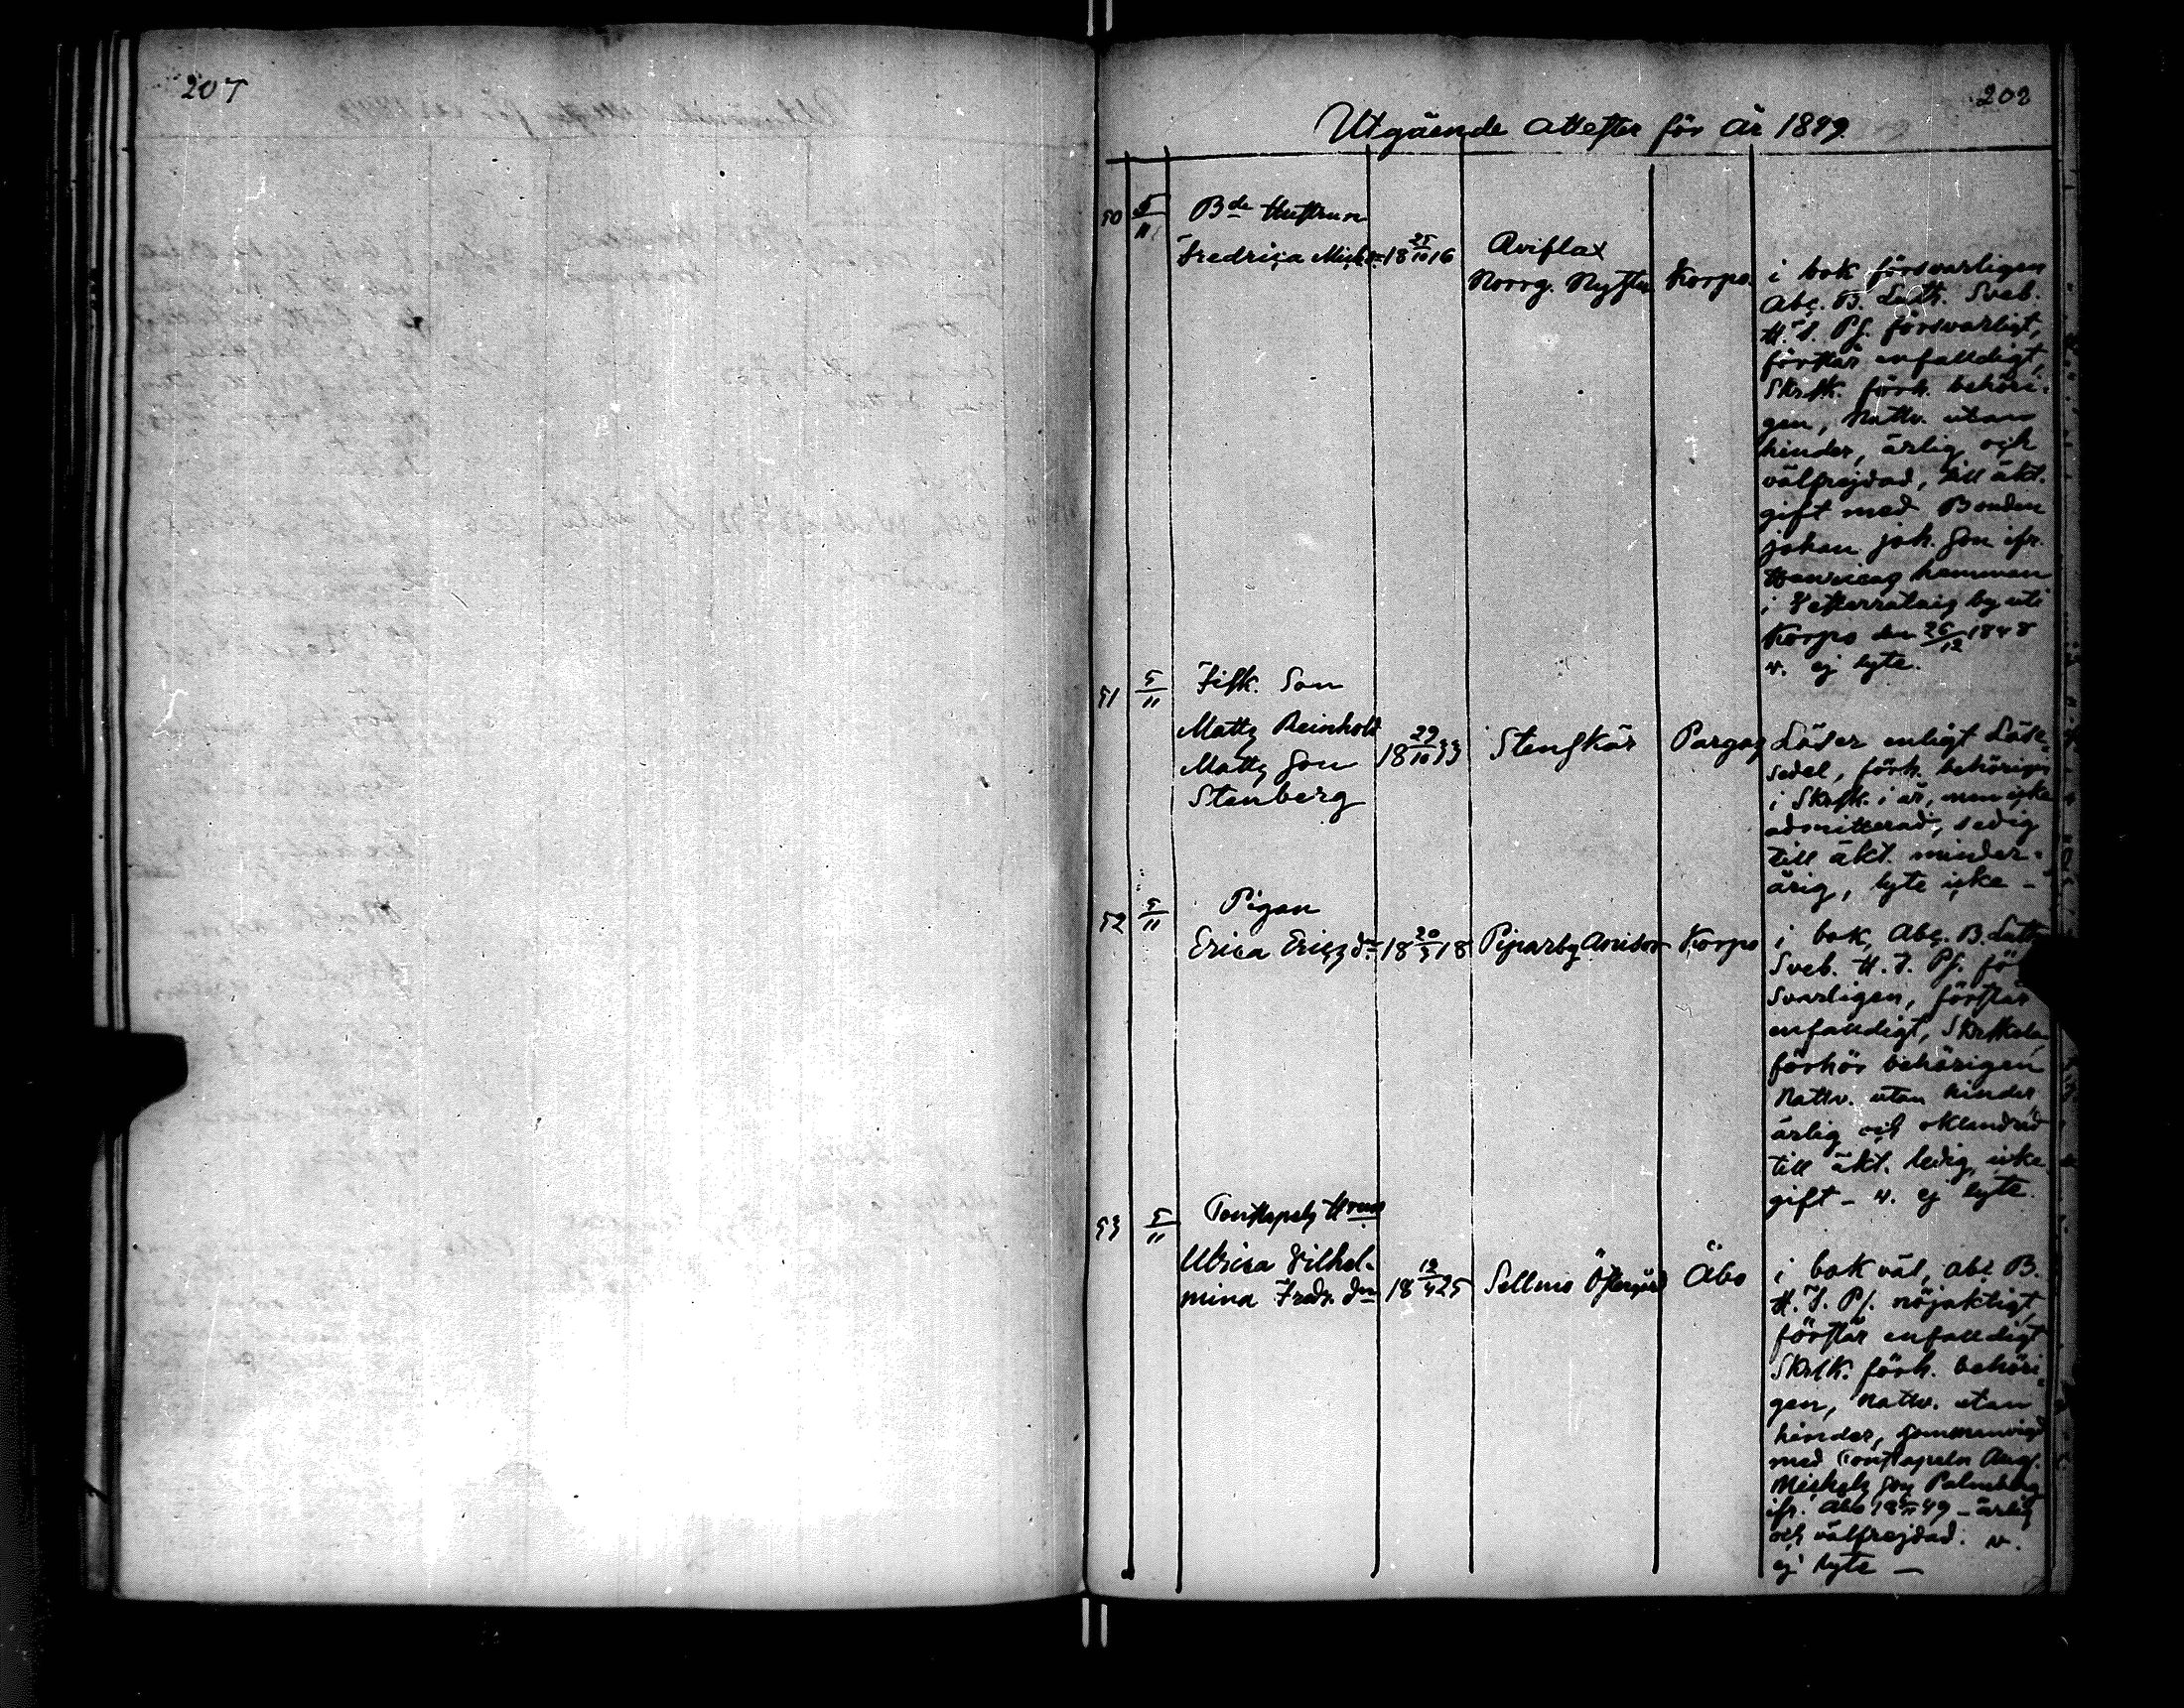 207
202
Utgående attester för år 1849.
50 5/11 Bde Hustrun
Fredrica Mich. 18 25/10 16
Aviflax
Norrg. Nystu Korpo.
i bok försvarligen
Abc. B. Luth. Sveb.
H. T. Ps. försvarligt,
förstår enfalldigt,
Skrsk. förh. behöri-
gen, Nattv. utan
hinder, ärlig och
välfrejdad, till äkt.
gift med Bonden
Johan Joh. Son ifr.
hemman
i by uti
Korpo den 26/12 1848
v. ej lyte.
51 5/11 Fisk. Son
Matts Reinhold
Matts Son
Stenberg
18 29/10 33 Stenskär Pargas
Läser enligt Läse-
sedel, förh. behörigen
i Skrsk. i år, men icke
admitterad, sedig
till äkt. minder-
årig, lyte icke –
52 5/11 Pigan
Erica Ericsdr 18 20/3 18 Piparby Korpo
i bok, Abc. B. Luth.
Sveb. H. T. Ps. för
svarligen, förstår
enfaldigt, Skrskola
förhör behörigen
Nattv. utan hinder
ärlig och oklandrad
till äkt. ledig, icke
gift – v. ej lyte.
53 5/11
Ulrica Vilhel-
mina Fredr. dr 18 12/4 25 Sellmo Östergård Åbo
i bok väl, abc B.
H. T. Ps. nöjaktigt,
förstår enfalldigt
Skrsk. förh. behöri-
gen, nattv. utan
hinder, sammanvigd
med Konstapeln Aug.
Michels Son Palmberg
ifr. Åbo 49 – ärlig
och välfrejdad. v.
ej lyte –